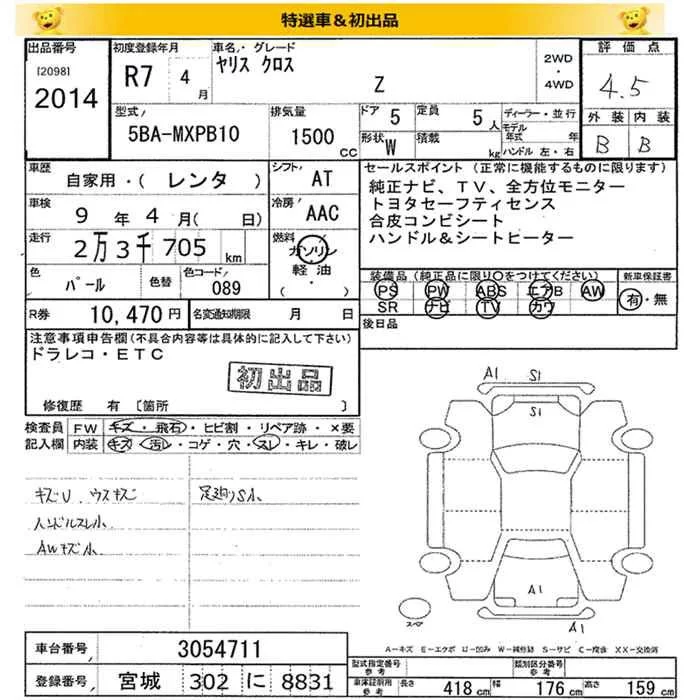 特選車＆初出品
出品番号
[2098]
2014
初度登録年月
R7 4月
車名・グレード
ヤリス クロス
Z
2WD
・
4WD
評価点
4.5
外装 内装
B B
型式
5BA-MXPB10
排気量
1500 CC
ドア 5
定員 5人
形状 W
積載 kg
ディーラー・並行
モデル年式 年
ハンドル 左・右
車歴
自家用・( レンタ )
シフト AT
車検
9年 4月( 日)
冷房 AAC
走行
2万3千705 km
燃料
ガソリン
軽油
( ・ )
色
パール
色替
色コード
089
セールスポイント (正常に機能するものに限ります)
純正ナビ、TV、全方位モニター
トヨタセーフティセンス
合皮コンビシート
ハンドル&シートヒーター
装備品 (純正品に限り○をつけてください)
PS PW ABS エアB AW
SR ナビ TV カワ
新車保証書
有・無
後日品
R券 10,470円
名変通知期限 月 日
注意事項申告欄(不具合内容等は具体的に記入して下さい)
ドラレコ・ETC
初出品
修復歴 有 [箇所 ]
検査員
記入欄
FW キズ・飛石・ヒビ割・リペア跡・×要
内装 キズ・汚レ・コゲ・穴・スレ・キレ・破レ
キズU、ウスキズ
ハンドルスレ小
AWキズ小
足廻りS小
A1 S1
S1
A1
A1
スペア
A－キズ E－エクボ U－凹み W－補修跡 S－サビ C－腐食 XX－交換済
車台番号 3054711
登録番号 宮城 302 に 8831
型式指定番号 参考
類別区分番号 参考
車庫証明用 参考
長さ 418 cm 幅 176 cm 高さ 159 cm